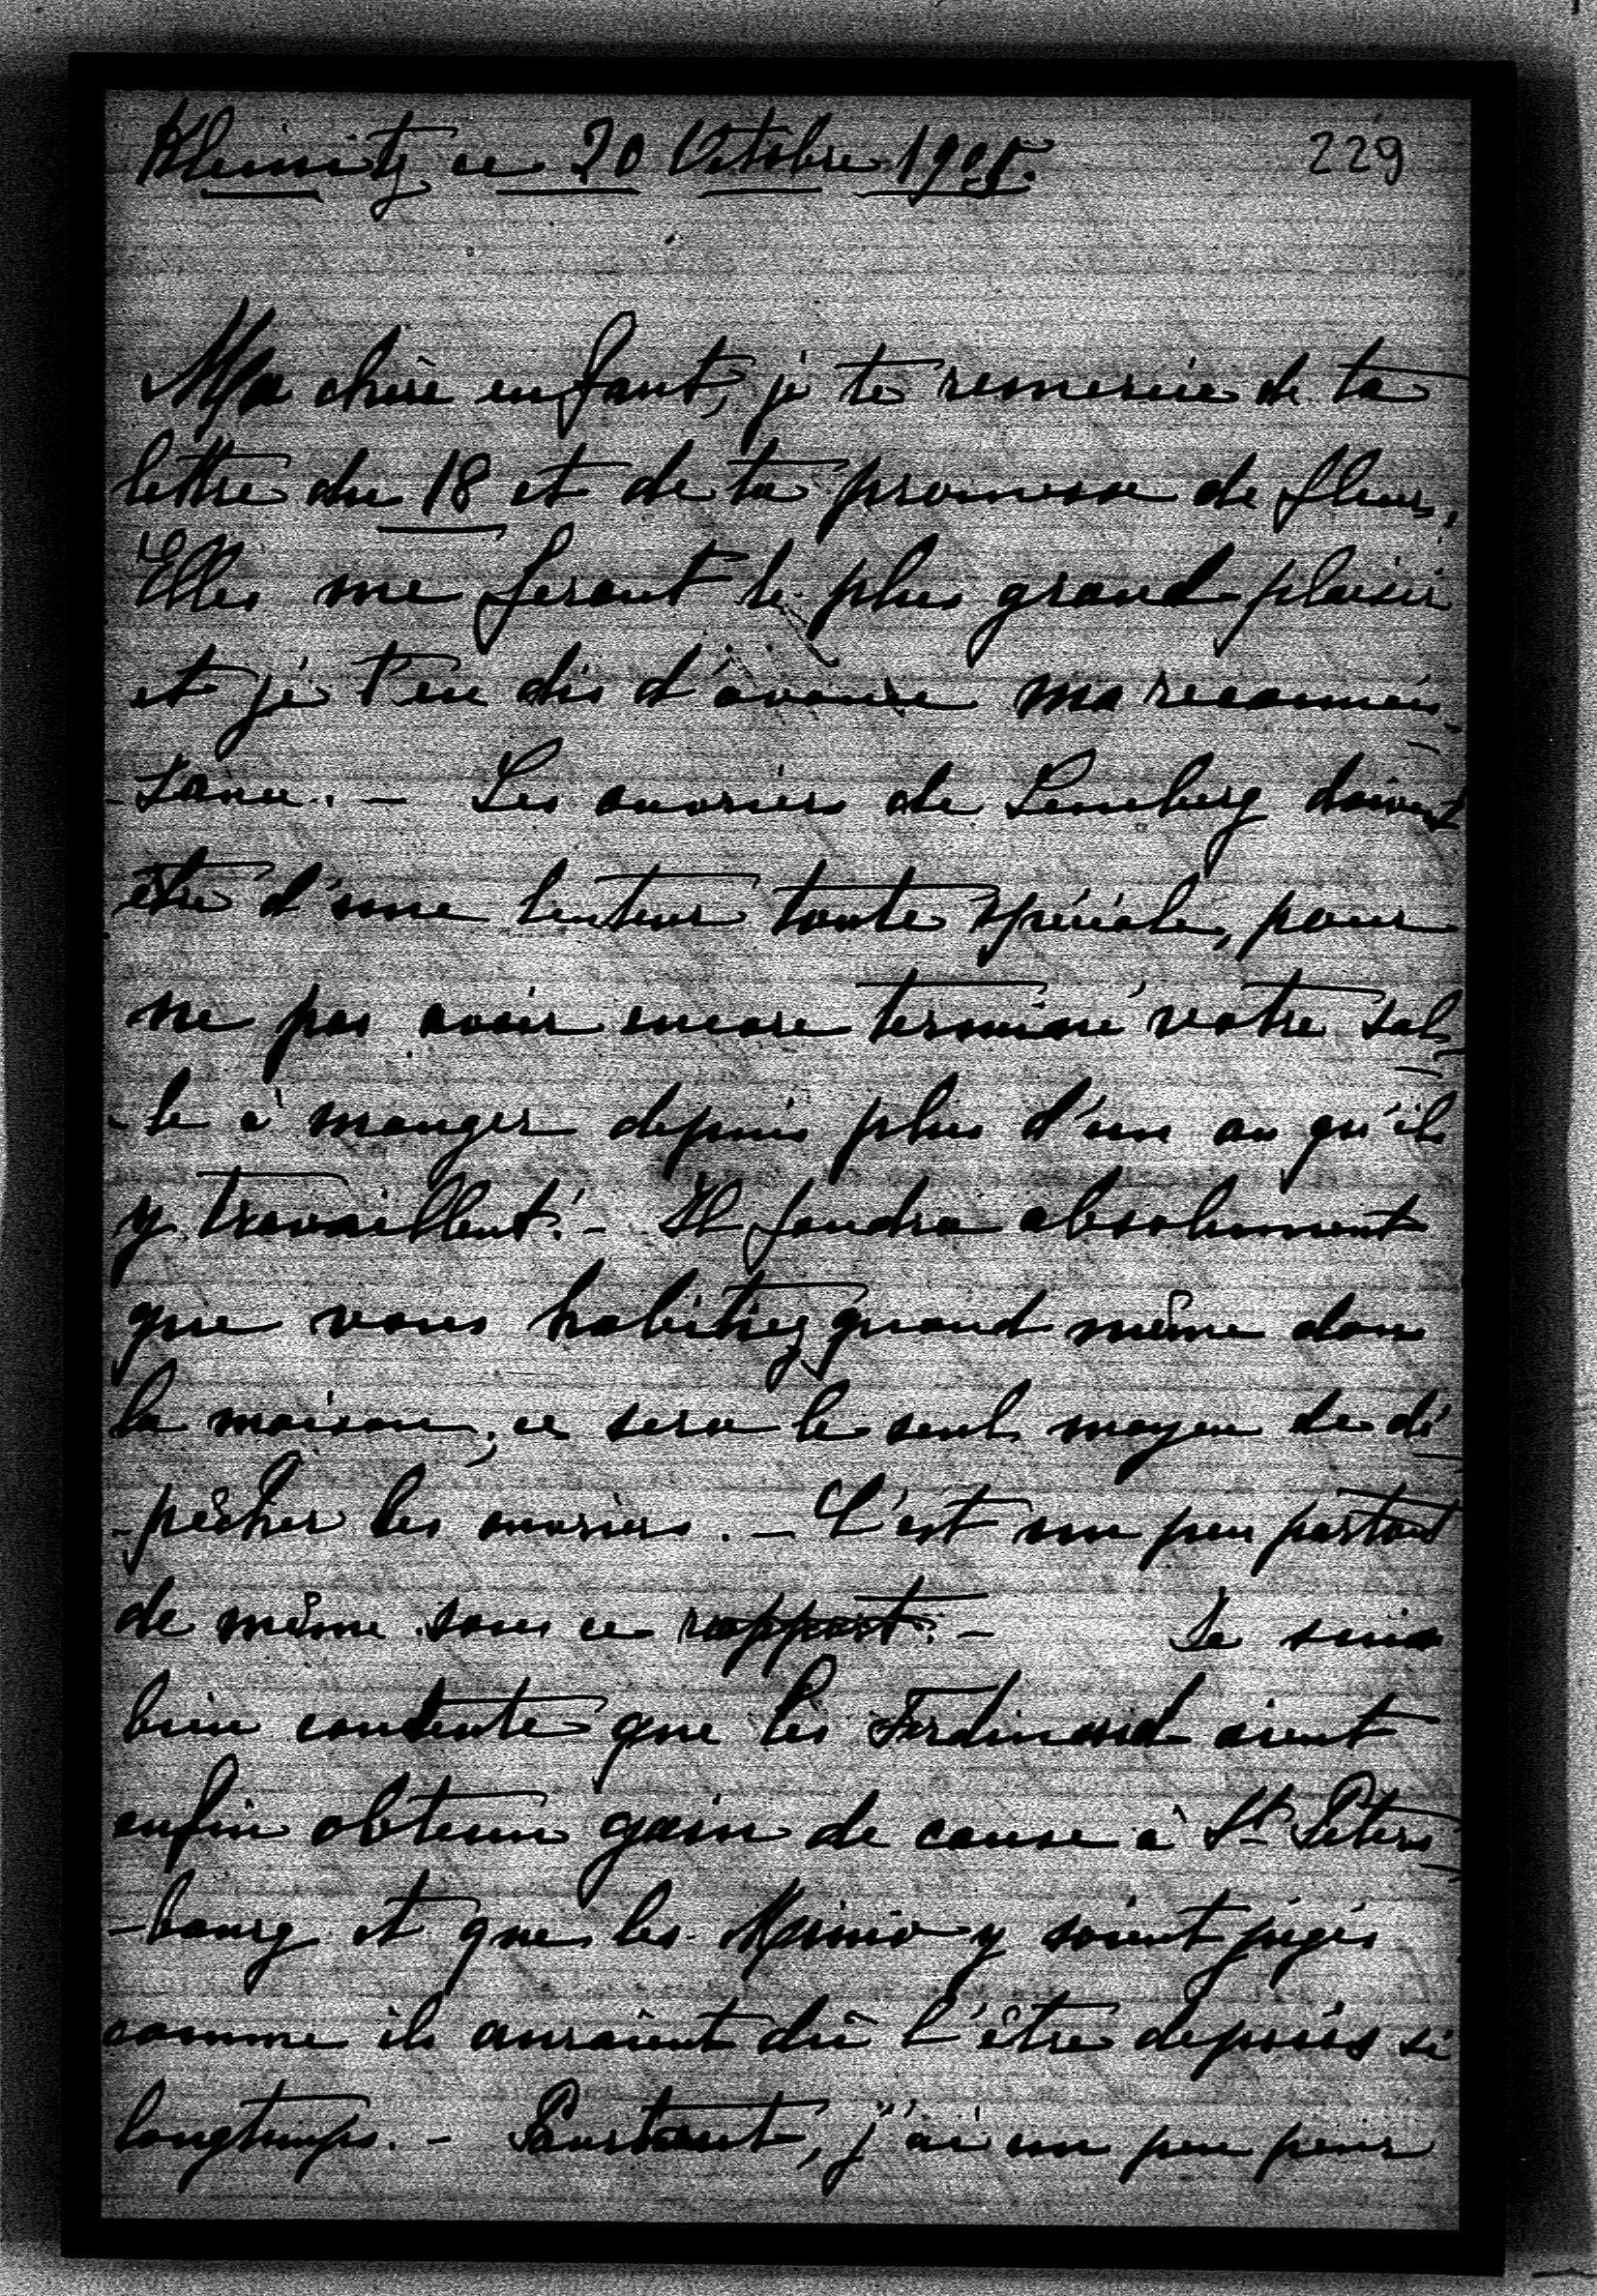 Kleinitz, ce 20 Octobre 1905. 229
Ma chère enfant, je te remercie de ta
lettre du 18 et de ta promesse de fleurs.
Elles me feront le plus grand plaisir
et je t'en dis d'avance ma reconnais-
-sance. - Les ouvriers de Lemberg doivent
être d'une lenteur toute spéciale, pour
ne pas avoir encore terminé votre sal-
-le à manger depuis plus d'un an qu'ils
y travaillent! - Il faudra absolument
que vous habitiez quand même dans
la maison; ce sera le seul moyen de dé-
-pêcher les ouvriers. - C'est un peu partout
de même sous ce rapport. - Je suis
bien contente que les Ferdinand aient
enfin obtenu gain de cause à St Péters-
-bourg et que les y soient jugés
comme ils auraient dû l'être depuis si
longtemps. - Pourtant, j'ai un peu peur